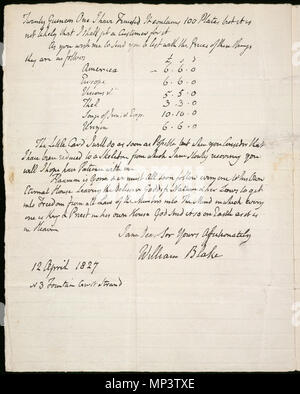 Twenty Guineas One I have Finished It contains 100 Plates but it is
not likely that I shall get a Customer for it
As you wish me to send you a list with the Prices of these things
they are as follows
£ s
America 6.6.0
Europe 6.6.0
Visions &c 5.5.0
Thel 3.3.0
Songs of Inn. & Exp. 10.10.0
Urizen 6.6.0
The Little Card I will do as soon as Possible but when you Consider that
I have been reduced to a Skeleton from which I am slowly recovering you
will I hope have Patience with me
Flaxman is Gone & we must All soon follow every one to his Own
Eternal House Leaving the Delusive Goddess Nature & her Laws to get
into Freedom from all Law of the Members into The Mind in which every
one is King & Priest in his own House God Send it so on Earth as it is
in Heaven
I am Dear Sir Yours Affectionately
William Blake
12 April 1827
N 3 Fountain Court Strand
alamy
Image ID: MP3TXE
www.alamy.com